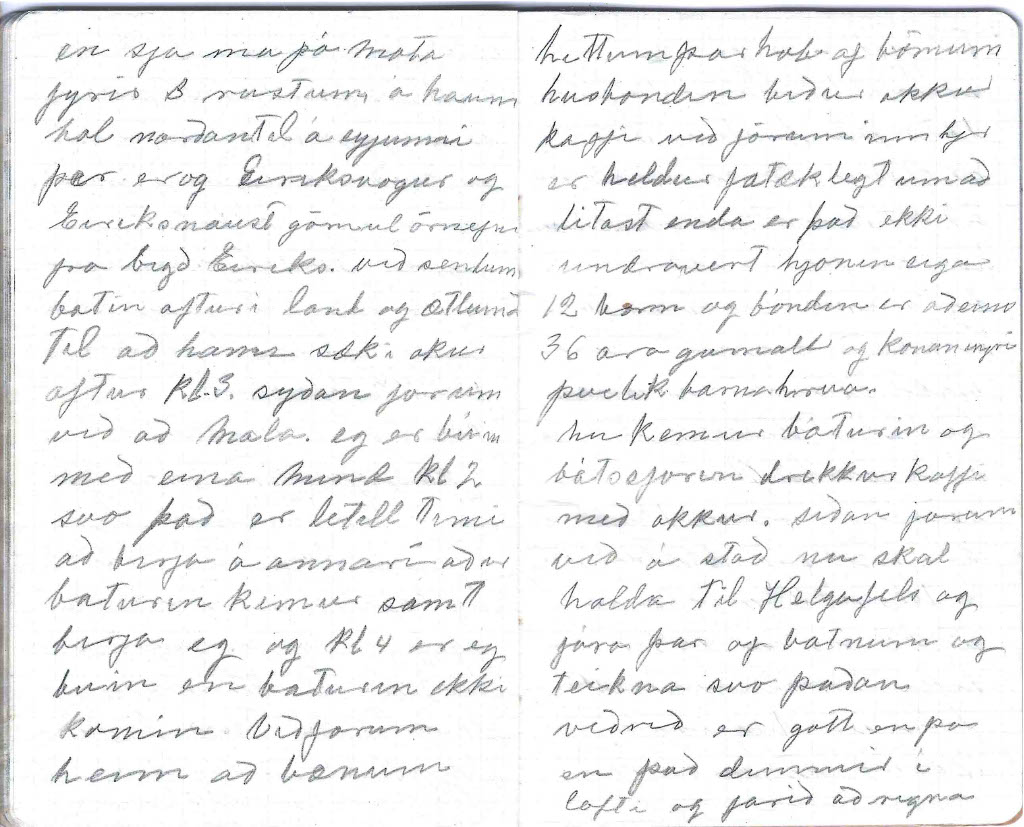 en sja ma þó mota
fyrir 3 rustum á haum
hol norðantil á eyjunni
þar er og Eiriksvogur og
Eiriksnaust gömul örnefni
fra bigð Eiriks. við sendum
batin aftur i land og ætlumst
til að hann sæki okur
aftur kl. 3. syðan forum
við að mala. eg er búin
með eina mind kl 2
svo það er litell timi
að birja á annari aður
baturin kemur samt
birja eg og kl 4 er eg
buin en baturin ekki
komin Við forum
heim að bænum
hittum þar hob af börnum
husbondin biður okkur
kaffi við förum inn hjer
er heldur fatæklegt um að
litast enda er það ekki
undravert hjonin eiga
12 börn og bóndin er aðeins
36 ara gamall og konan ingri
þvilik barnahrua.
nu kemur báturin og
bátseforin drekkur kaffi
með okkur. siðan forum
við á stað nu skal
halda til Helgafels og
fara þar af batnum og
teikna svo þaðan
veðrið er gott en þo
en það dimmir i
lofti og farið að regna